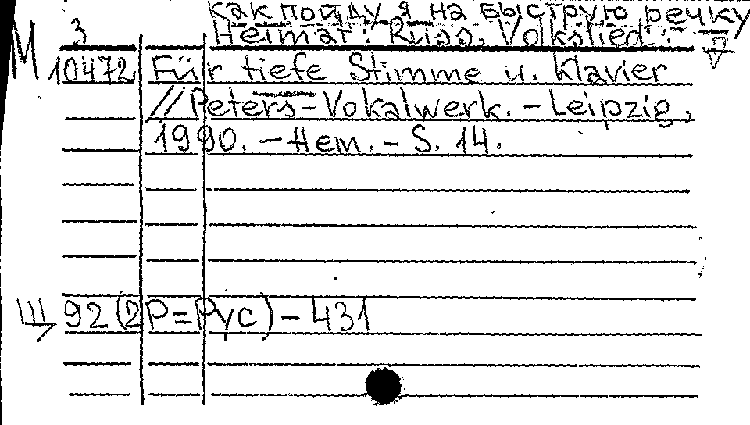 как пойду я на быструю речку
М 3 Heimat: Russ. Volkslied:
10472 Für tiefe Stimme u. Klavier
// Peters-Vokalwerk. - Leipzig,
1990. - Нем. - S. 14.
Ш 92 (2Р=Рус) - 431